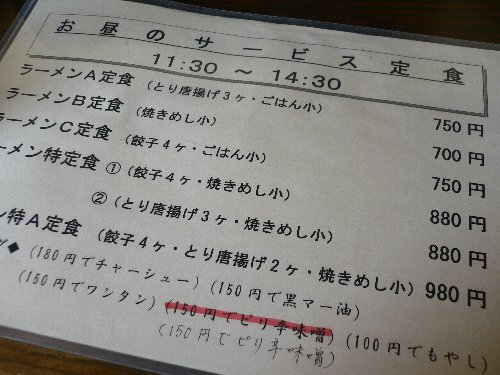 お昼のサービス定食
11:30 ～ 14:30
ラーメンA定食 (とり唐揚げ3ヶ・ごはん小) 750円
ラーメンB定食 (焼きめし小) 700円
ーメンC定食 (餃子4ヶ・ごはん小) 750円
ーメン特定食 ① (餃子4ヶ・焼きめし小) 880円
② (とり唐揚げ3ヶ・焼きめし小) 880円
ン特A定食 (餃子4ヶ・とり唐揚げ2ヶ・焼きめし小) 980円
◆ (180円でチャーシュー) (150円で黒マー油)
(150円でワンタン) (150円でピリ辛味噌) (100円でもやし)
(150円でピリ辛味噌)